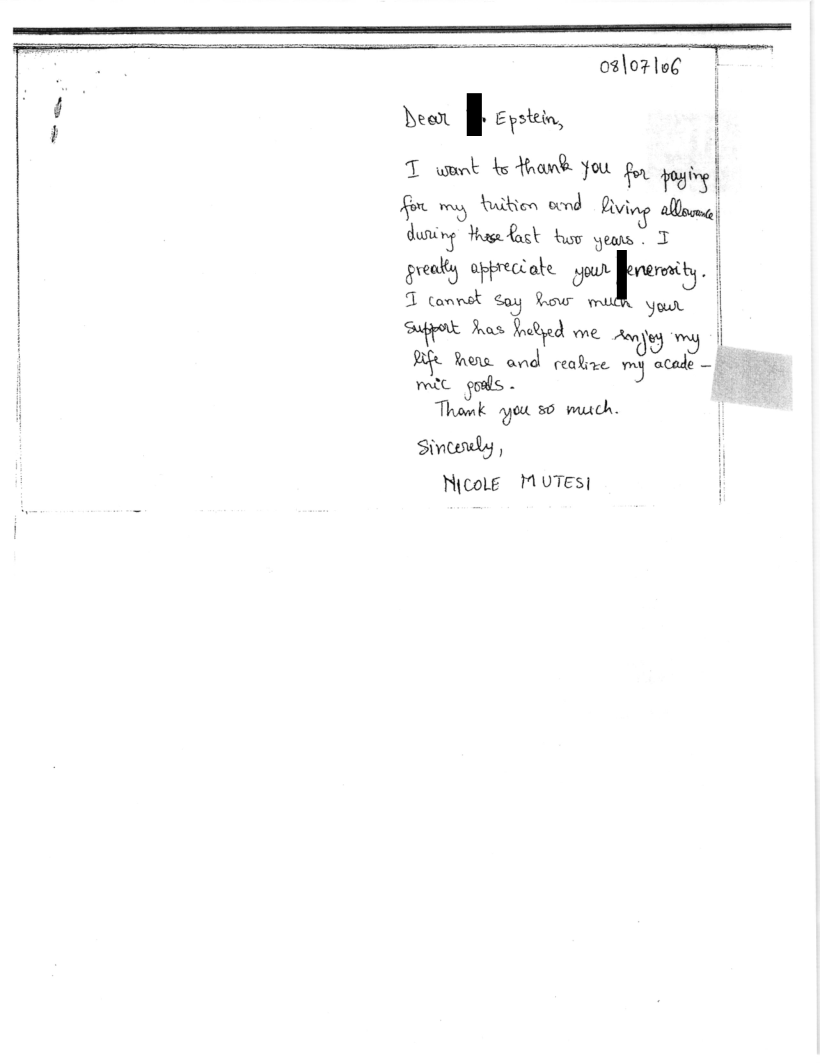 08/07/06
Dear . Epstein,
I want to thank you for paying
for my tuition and living allowance
during those last two years. I
greatly appreciate your enerosity.
I cannot say how much your
support has helped me enjoy my
life here and realize my acade-
mic goals.
Thank you so much.
Sincerely,
NICOLE MUTESI